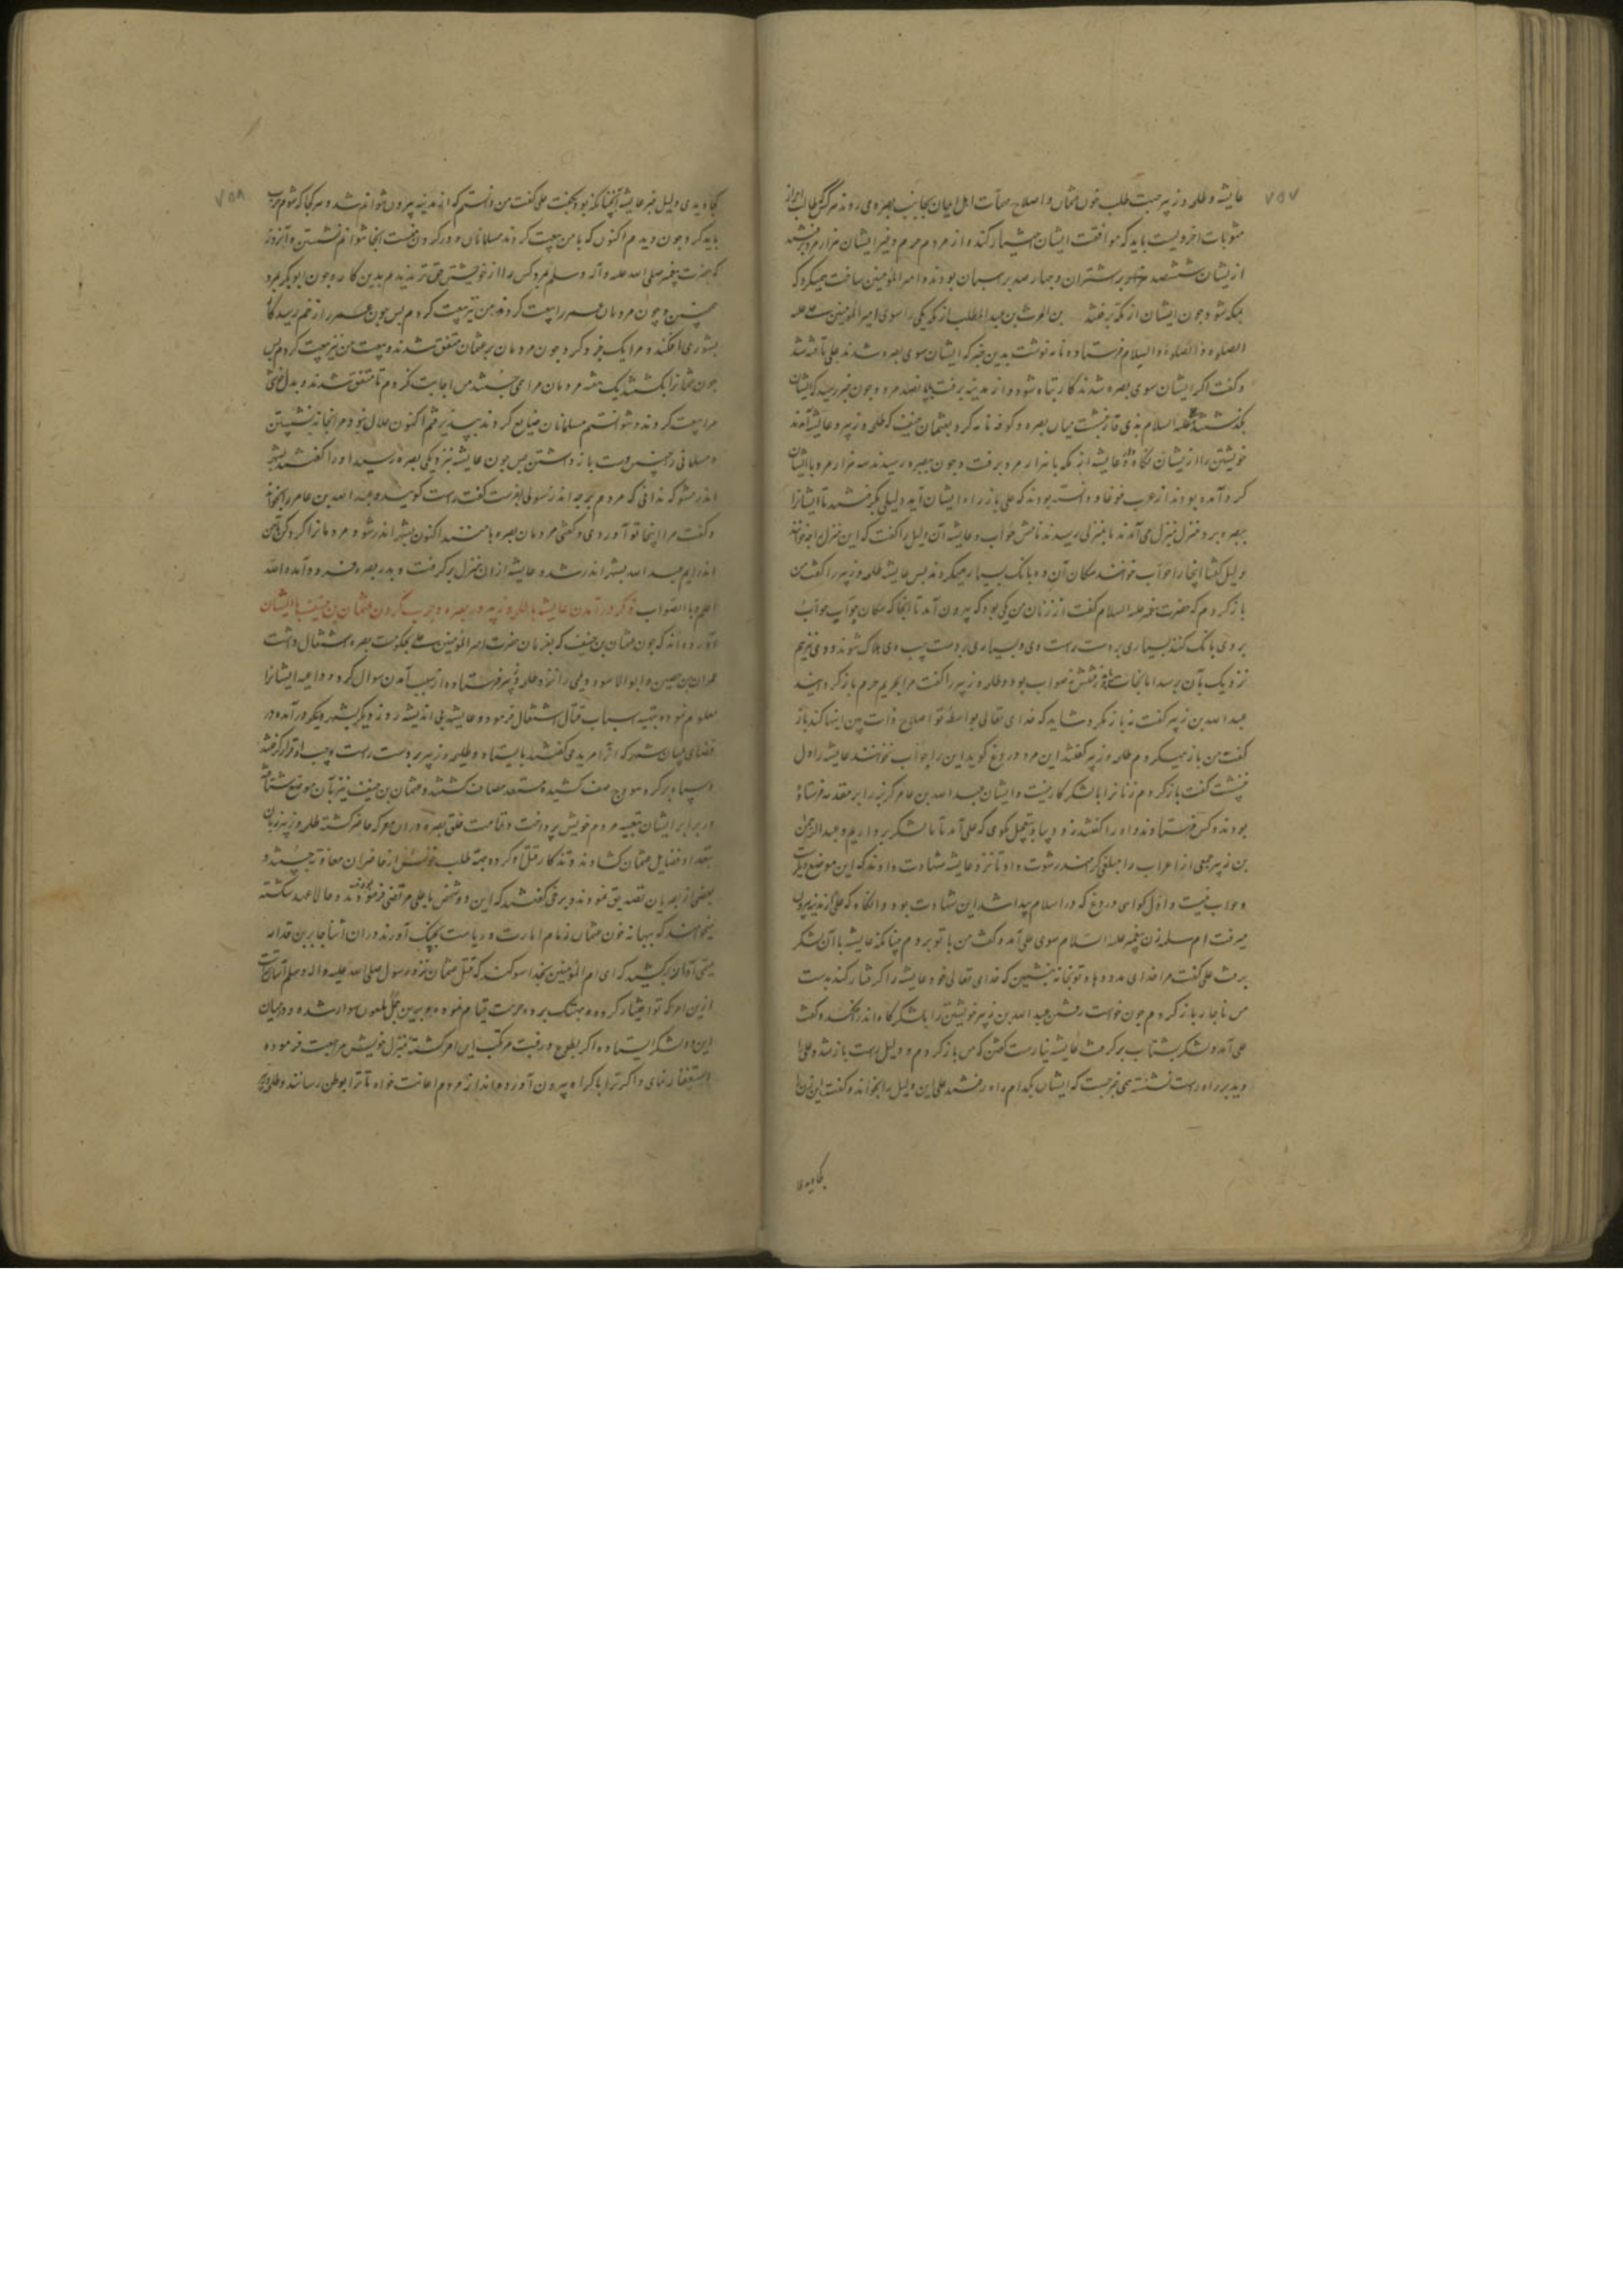 ۷۵۷
عایشه و طلحه و زبیر جهت طلب خون عثمان و اصلاح مهمات اهل ایمان بجانب بصره می روند هر کس طالب
مثوبات اخرویست باید که موافقت ایشان اختیار کند و از مردم حرم و غیر ایشان هزار مرد برفتند
از یشان ششصد بر شتران و چهار صد بر اسبان بودند و امیر المؤمنین ساخت میکرد که
بمکه شود چون ایشان از مکه برفتند بن الحرث بن عبد المطلب از مکه یکی را سوی امیر المؤمنین علی علیه
الصلوة و السلام فرستاد و نامه نوشت بدین خبر که ایشان سوی بصره شدند علی تافته شد
و گفت اگر ایشان سوی بصره شدند کار تباه شود و از مدینه برفت با نهصد مرد و چون خبر رسید که ایشان
بگذشتند علی علیه السلام بذی قار بنشست میان بصره و کوفه نامه کرد بعثمان حنیف که طلحه و زبیر و عایشه آمدند
خویشتن را از یشان نگاه دار و عایشه از مکه با هزار مرد برفت و چون ببصره رسیدند سه هزار مرد با ایشان
گرد آمده بودند از عرب غوغا و دانسته بودند که علی باز راه ایشان آید دلیلی بگرفتند تا ایشانرا
ببصره برد منزل بمنزل می آمدند تا بمنزلی رسیدند نامش حوأب و عایشه آن دلیل را گفت که این منزل را چه خوانند
دلیل گفتا اینجا را حوأب خوانند سگان آن ده بانگ بسیار میکردند پس عایشه طلحه و زبیر را گفت من
باز گردم که حضرت پیغمبر علیه السلام گفت از زنان من یکی بود که بیرون آید تا آنجا که سگان حوأب
بروی بانگ کنند بسیاری بر دست راست وی و بسیاری بر دست چپ وی هلاک شوند و وی نیز هم
نزدیک بآن برسد اما نجات یابد و رفتنش نه صواب بود و طلحه و زبیر را گفت مرا بحریم حرم باز گردانید
عبد الله بن زبیر گفت نه باز نگرد شاید که خدای تعالی بواسطه تو اصلاح ذات بین اینها کند باز
گفت من باز میگردم طلحه و زبیر گفتند این مرد دروغ گوید این را حوأب نخوانند عایشه را دل
ننشست گفت باز گردم زنانرا با لشکر کار نیست و ایشان عبد الله بن عامر کریز را بر مقدمه فرستاده
بودند و کس فرستادند و او را گفتند زود بیا و بتعجیل بگوی که علی آمد تا ما لشکر برداریم و عبد الرحمن
بن زبیر جمعی از اعراب را مبلغی گرانمند رشوت داد تا نزد عایشه شهادت دادند که این موضع دیگرست
و حوأب نیست و اول گواهی دروغ که در اسلام پیدا شد این شهادت بود و آنگاه که علی از مدینه بیرون
میرفت ام سلمه زن پیغمبر علیه السلام سوی علی آمد و گفت من با تو بروم چنانکه عایشه با آن لشکر
برفت علی گفت مرا خدای مدد دهاد تو بخانه بنشین که خدای تعالی خود عایشه را گرفتار کند بدست
من ناچار باز گردم چون خواست رفتن عبد الله بن زبیر خویشتن را با لشکرگاه اندر افکند و گفت
علی آمد و لشکر بشتاب برگرفت عایشه نیارست گفتن که من باز گردم و دلیل راست باز شد و علی را
دید بر راه راست نشسته همی خبر جست که ایشان بکدام راه رفتند علی این دلیل را بخواند و گفت این زن را
کجا دیدی
۷۵۸
کجا دیدی دلیل خبر عایشه آنچنانکه بود بگفت علی گفت من دانستم که از مدینه بیرون نتوانم شد و هر کجا که شوم حرب
باید کرد چون دیدم اکنون که با من بیعت کردند مسلمانان و در گردن منست اینجا نتوانم نشستن و آنروز
که حضرت پیغمبر صلی الله علیه وآله وسلم بمرد کس را از خویشتن حق تر ندیدم بدین کار و چون ابوبکر بمرد
همچنین و چون مردمان عمر را بیعت کردند من نیز بیعت کردم پس چون عمر را زخم رسید کار
بشوری افکند و مرا یک جزو کرد چون مردمان بر عثمان متفق شدند و بیعت من نیز بیعت کردم پس
چون عثمانرا بکشتند یک هفته مردمان مرا همی جستند من اجابت نکردم تا متفق شدند و بدل خوش
مرا بیعت کردند و نتوانستم مسلمانان ضایع کردند بپذیرفتم اکنون حلال نبود مرا بخانه نشستن
و مسلمانی را چنین دست باز داشتن پس چون عایشه نزدیکی بصره رسید او را گفتند بشهر
اندر مشو که ندانی که مردم بر چه اند رسولی بفرست گفت راست گویید و عبد الله بن عامر را بخواند
و گفت مرا اینجا تو آوردی و گفتی مردمان بصره با منند اکنون بشهر اندر شو و مردمانرا گرد کن تا من
اندر آیم عبد الله بشهر اندر شد و عایشه از ان منزل برگرفت و بدر بصره فرود آمد والله
اعلم بالصواب ذکر در آمدن عایشه با طلحه و زبیر در بصره و حرب کردن عثمان بن حنیف با ایشان
آورده اند که چون عثمان بن حنیف که بفرمان حضرت امیر المؤمنین علی بحکومت بصره اشتغال داشت
عمران بن حصین و ابو الاسود دیلمی را نزد طلحه و زبیر فرستاده از سبب آمدن سوال کرد و داعیه ایشانرا
معلوم نموده بتهیه اسباب قتال اشتغال فرمود و عایشه بی اندیشه روز دیگر بشهر دیگر در آمده در
فضای میان شهر که انرا مربد می گفتند بایستاد و طلحه و زبیر بر دست راست و چپ او قرار گرفتند
و سپاه بر گرد هودج صف کشیده مستعد مصاف گشتند و عثمان بن حنیف نیز بآن موضع شتافته
در برابر ایشان بتعبیه مردم خویش پرداخت و قامت خلق بصره در ان معرکه حاضر گشته طلحه و زبیر زبان
بتعداد فضایل عثمان گشادند و تذکار قتل او کرده بهته طلب خونش از حاضران معاونت جستند و
بعضی از بصریان تصدیق نمودند و برخی گفتند که این دو شخص با علی مرتضی بیعت فرموده بودند و حالا عهد شکسته
میخواهند که ببهانه خون عثمان زمام امارت و ریاست بچنگ آورند در ان اثنا جابر بن قدامه
آواز برکشید که ای ام المؤمنین بخدا سوگند که قتل عثمان نزد رسول صلی الله علیه واله وسلم آسانتر
از این امر که تو اختیار کرده و بهتک پرده حرمت قیام نموده و بر این جمل ملعون سوار شده و در میان
این دو لشکر ایستاده اگر بطوع و رغبت مرتکب این امر گشته بمنزل خویش مراجعت فرموده
استغفار نمای و اگر ترا باکراه بیرون آورده اند از مردم اعانت خواه تا ترا بوطن رسانند و طلحه و زبیر